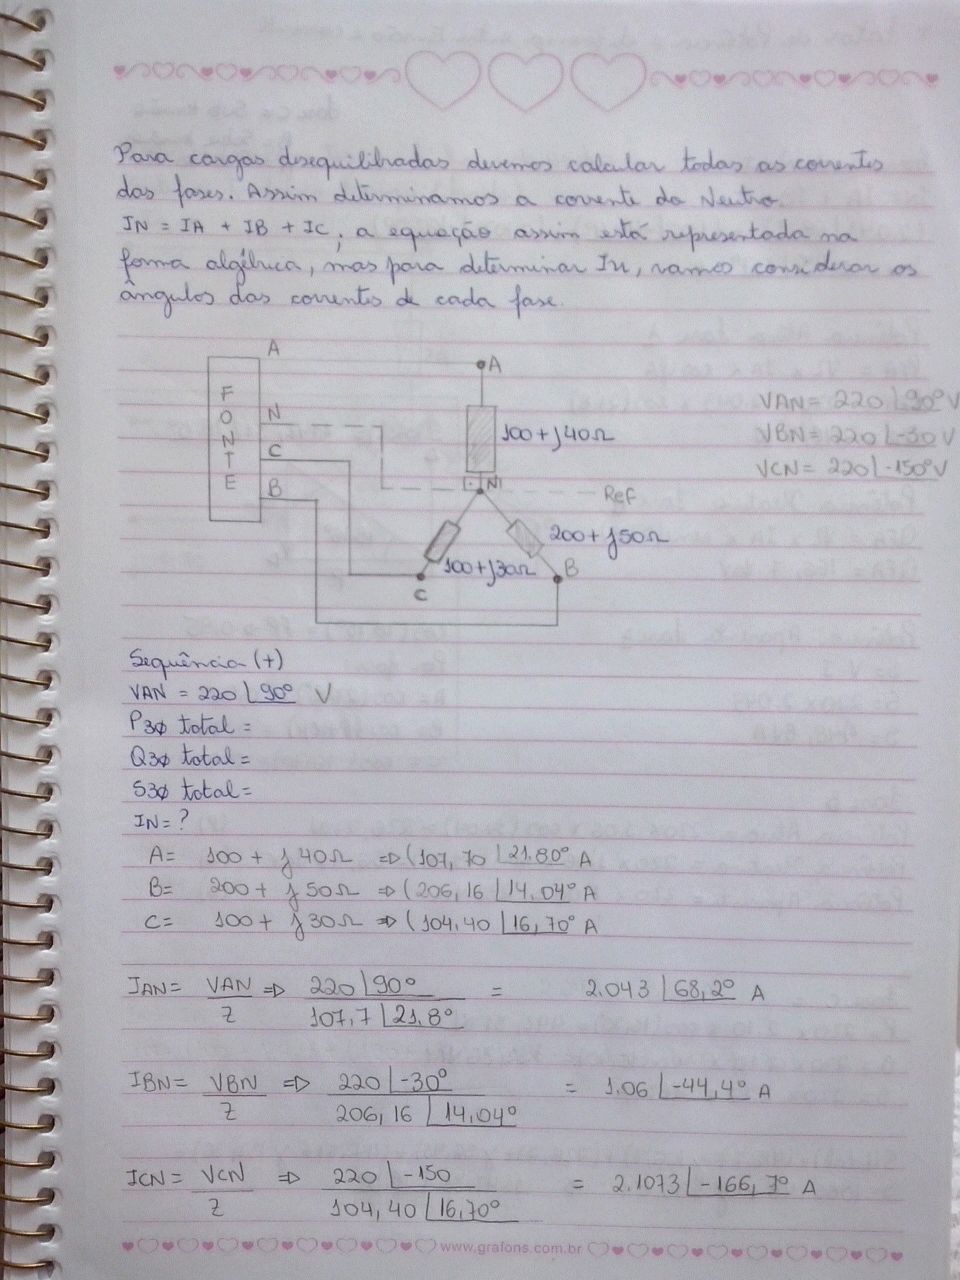 Para cargas desequilibradas devemos calcular todas as correntes
das fases. Assim determinamos a corrente do Neutro.
IN = IA + IB + IC, a equação assim está representada na
forma algébrica, mas para determinar IN, vamos considerar os
ângulos das correntes de cada fase.
A
FONTE
N
C
B
A
100+j40Ω
N
Ref
200+j50Ω
100+j30Ω
B
C
VAN= 220∠90° V
VBN= 220∠-30 V
VCN= 220∠-150° V
Sequência (+)
VAN = 220∠90° V
P3ø total =
Q3ø total =
S3ø total =
IN= ?
A= 100 + j40Ω => (107,70∠21.80° A
B= 200 + j50Ω => (206,16∠14,04° A
C= 100 + j30Ω => (104,40∠16,70° A
IAN= VAN/Z => 220∠90°/107,7∠21.8° = 2.043∠68,2° A
IBN= VBN/Z => 220∠-30°/206,16∠14,04° = 1.06∠-44,4° A
ICN= VCN/Z => 220∠-150/104,40∠16,70° = 2.1073∠-166,7° A
www.grafons.com.br